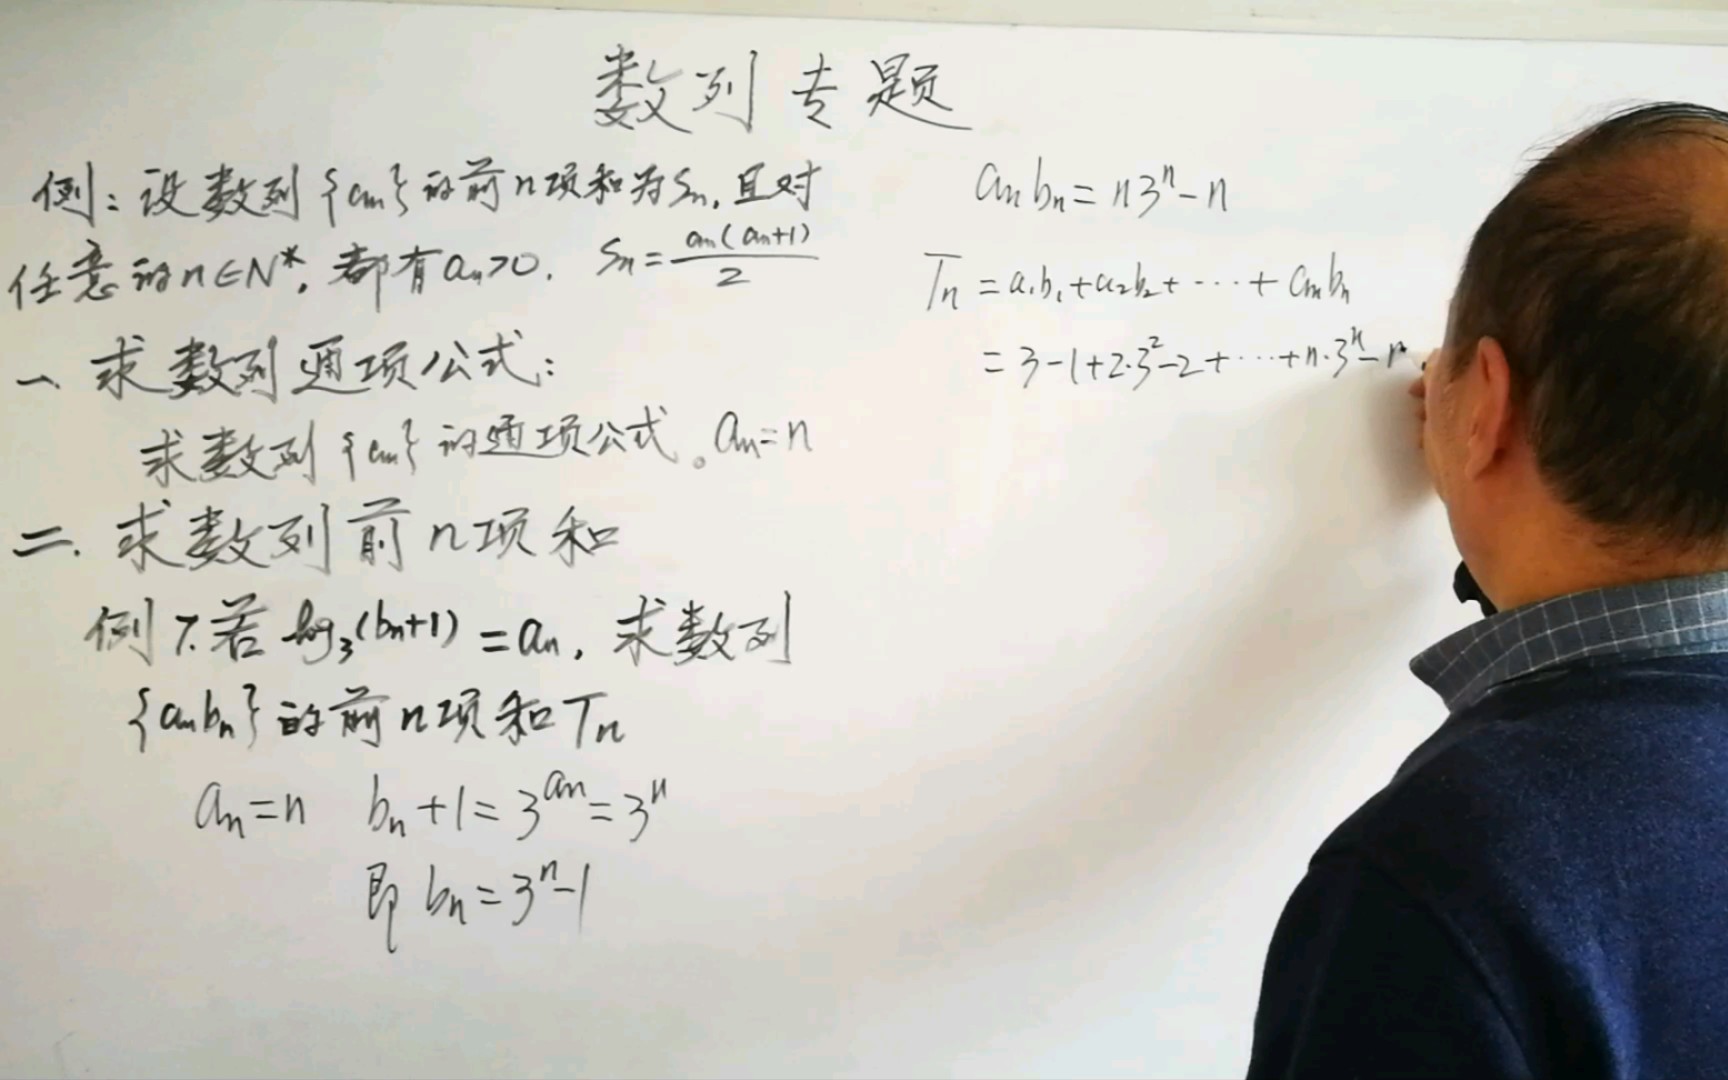 数列专题
例：设数列{an}的前n项和为Sn，且对
任意的n∈N*，都有an>0．Sn=an(an+1)/2
一、求数列通项公式：
求数列{an}的通项公式。an=n
二．求数列前n项和
例7.若log₃(bn+1)=an，求数列
{anbn}的前n项和Tn
an=n  bn+1=3^an=3^n
即 bn=3^n-1
anbn=n3^n-n
Tn=a₁b₁+a₂b₂+⋯+anbn
=3-1+2·3²-2+⋯+n·3^n-n